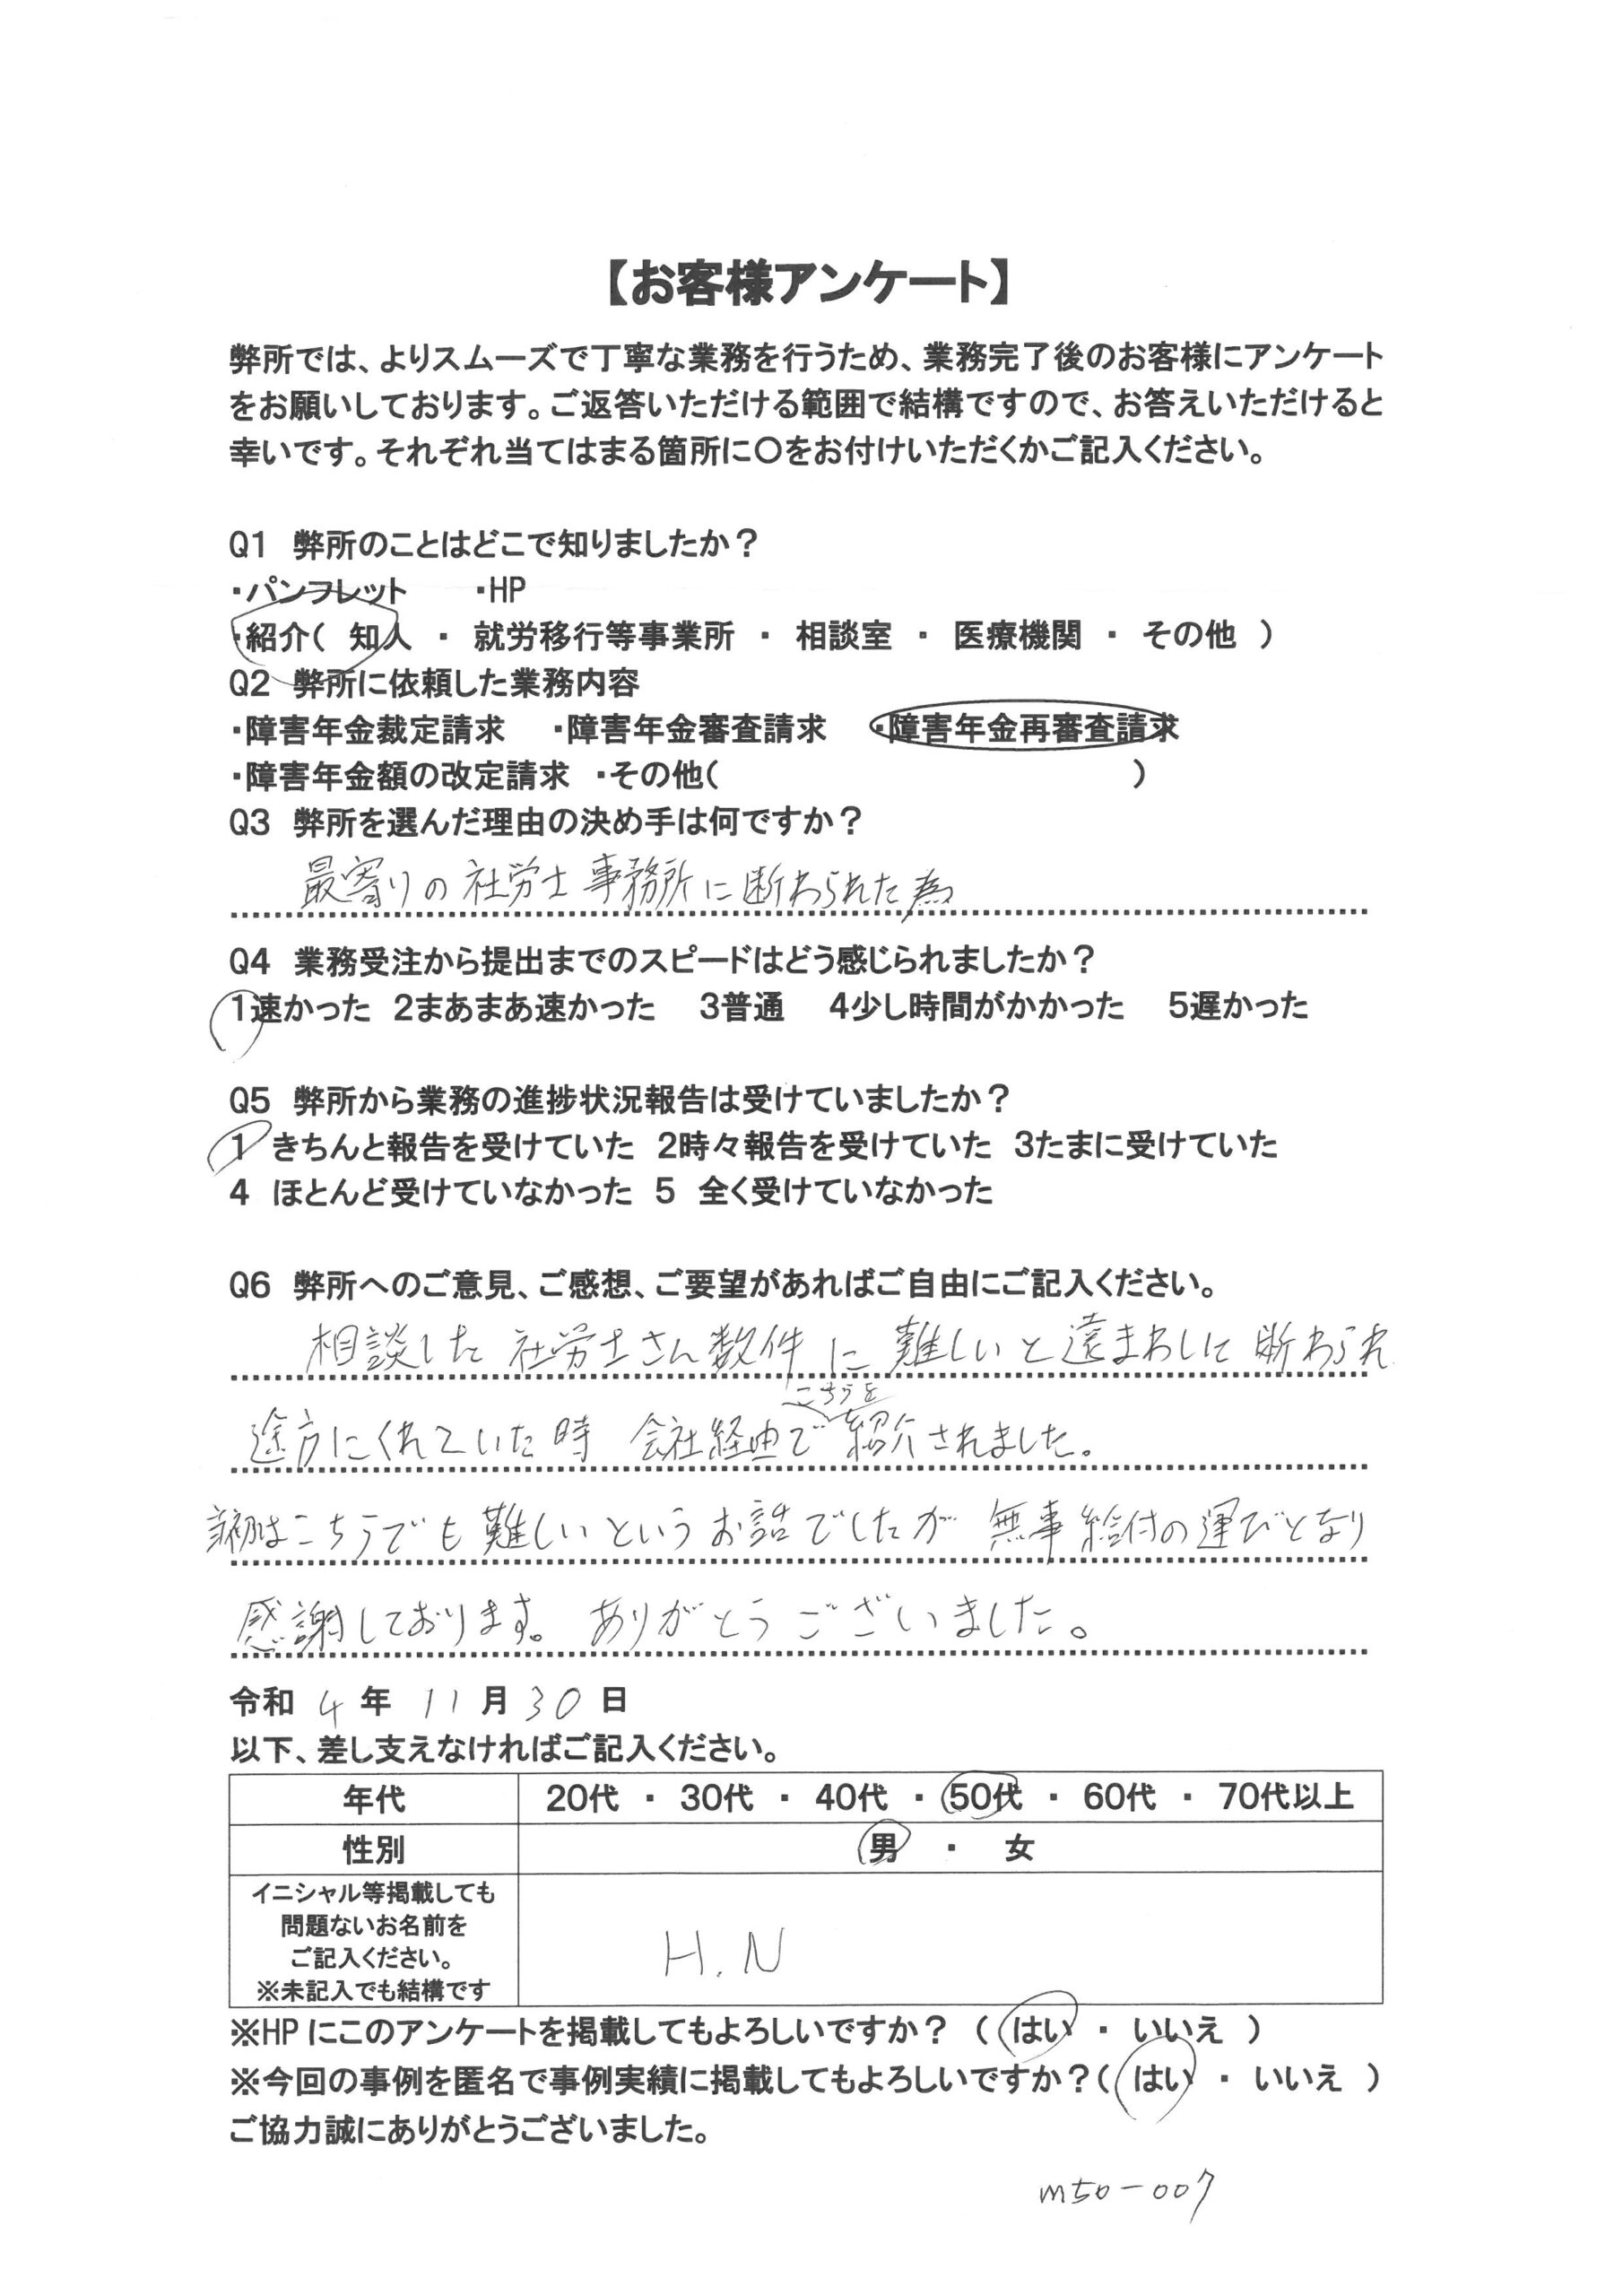 【お客様アンケート】
弊所では、よりスムーズで丁寧な業務を行うため、業務完了後のお客様にアンケート
をお願いしております。ご返答いただける範囲で結構ですので、お答えいただけると
幸いです。それぞれ当てはまる箇所に〇をお付けいただくかご記入ください。
Q1 弊所のことはどこで知りましたか？
・パンフレット ・HP
・紹介（ 知人 ・ 就労移行等事業所 ・ 相談室 ・ 医療機関 ・ その他 ）
Q2 弊所に依頼した業務内容
・障害年金裁定請求 ・障害年金審査請求 ・障害年金再審査請求
・障害年金額の改定請求 ・その他（ ）
Q3 弊所を選んだ理由の決め手は何ですか？
最寄りの社労士事務所に断わられた為
Q4 業務受注から提出までのスピードはどう感じられましたか？
1速かった 2まあまあ速かった 3普通 4少し時間がかかった 5遅かった
Q5 弊所から業務の進捗状況報告は受けていましたか？
1 きちんと報告を受けていた 2時々報告を受けていた 3たまに受けていた
4 ほとんど受けていなかった 5 全く受けていなかった
Q6 弊所へのご意見、ご感想、ご要望があればご自由にご記入ください。
相談した社労士さん数件に難しいと遠まわしに断わられ
途方にくれていた時 会社経由でこちらを紹介されました。
当初はこちらでも難しいというお話でしたが 無事給付の運びとなり
感謝しております。ありがとうございました。
令和 4 年 11 月 30 日
以下、差し支えなければご記入ください。
年代 20代 ・ 30代 ・ 40代 ・ 50代 ・ 60代 ・ 70代以上
性別 男 ・ 女
イニシャル等掲載しても
問題ないお名前を
ご記入ください。
※未記入でも結構です
H.N
※HPにこのアンケートを掲載してもよろしいですか？（ はい ・ いいえ ）
※今回の事例を匿名で事例実績に掲載してもよろしいですか？（ はい ・ いいえ ）
ご協力誠にありがとうございました。
m50-007